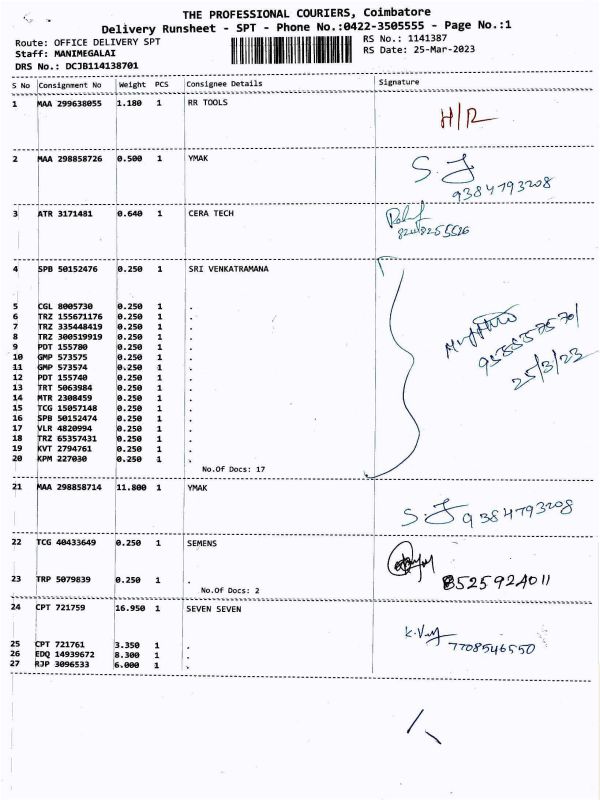 THE PROFESSIONAL COURIERS, Coimbatore
Delivery Runsheet - SPT - Phone No.:0422-3505555 - Page No.:1
Route: OFFICE DELIVERY SPT RS No.: 1141387
Staff: MANIMEGALAI RS Date: 25-Mar-2023
DRS No.: DCJB114138701
S No Consignment No Weight PCS Consignee Details Signature
1 MAA 299638055 1.180 1 RR TOOLS
H/R
2 MAA 298858726 0.500 1 YMAK
S. J
9384793208
3 ATR 3171481 0.640 1 CERA TECH
4 SPB 50152476 0.250 1 SRI VENKATRAMANA
5 CGL 8005730 0.250 1 .
6 TRZ 155671176 0.250 1 .
7 TRZ 335448419 0.250 1 .
8 TRZ 300519919 0.250 1 .
9 PDT 155780 0.250 1 .
10 GMP 573575 0.250 1 .
11 GMP 573574 0.250 1 .
12 PDT 155740 0.250 1 .
13 TRT 5063984 0.250 1 .
14 MTR 2308459 0.250 1 .
15 TCG 15057148 0.250 1 .
16 SPB 50152474 0.250 1 .
17 VLR 4820994 0.250 1 .
18 TRZ 65357431 0.250 1 .
19 KVT 2794761 0.250 1 .
20 KPM 227030 0.250 1 .
25/3/23
No.Of Docs: 17
21 MAA 298858714 11.800 1 YMAK
S. J 9384793208
22 TCG 40433649 0.250 1 SEMENS
23 TRP 5079839 0.250 1 .
8525924011
No.Of Docs: 2
24 CPT 721759 16.950 1 SEVEN SEVEN
7708546550
25 CPT 721761 3.350 1 .
26 EDQ 14939672 8.300 1 .
27 RJP 3096533 6.000 1 .